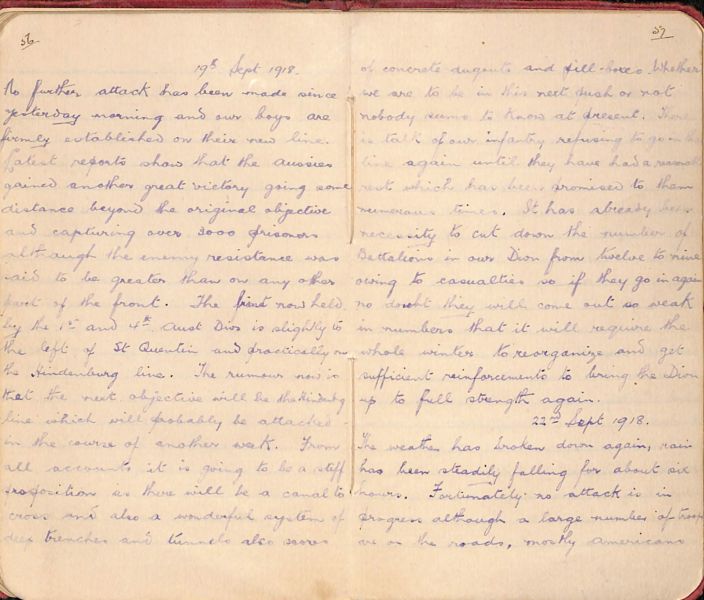 56
19th Sept 1918.
No further attack has been made since
yesterday morning and our boys are
firmly established on their new line.
Latest reports show that the aussies
gained another great victory going some
distance beyond the original objective
and capturing over 3000 prisoners
although the enemy resistance was
said to be greater than on any other
part of the front. The front now held
by the 1st and 4th Aust Divs is slightly to
the left of St Quentin and practically on
the Hindenburg line. The rumour now is
that the next objective will be the Hindenbg
line which will probably be attacked
in the course of another week. From
all accounts it is going to be a stiff
proposition as there will be a canal to
cross and also a wonderful system of
deep trenches and tunnels also scores
57
of concrete dugouts and pill-boxes. Whether
we are to be in this next push or not
nobody seems to know at present. There
is talk of our infantry refusing to go in the
line again until they have had a reasonable
rest which has been promised to them
numerous times. It has already been
necessity to cut down the number of
Battalions in our Divn from twelve to nine
owing to casualties so if they go in again
no doubt they will come out so weak
in numbers that it will require the
whole winter to reorganize and get
sufficient reinforcements to bring the Divn
up to full strength again.
22nd Sept 1918.
The weather has broken down again, rain
has been steadily falling for about six
hours. Fortunately no attack is in
progress although a large number of troops
are on the roads, mostly americans